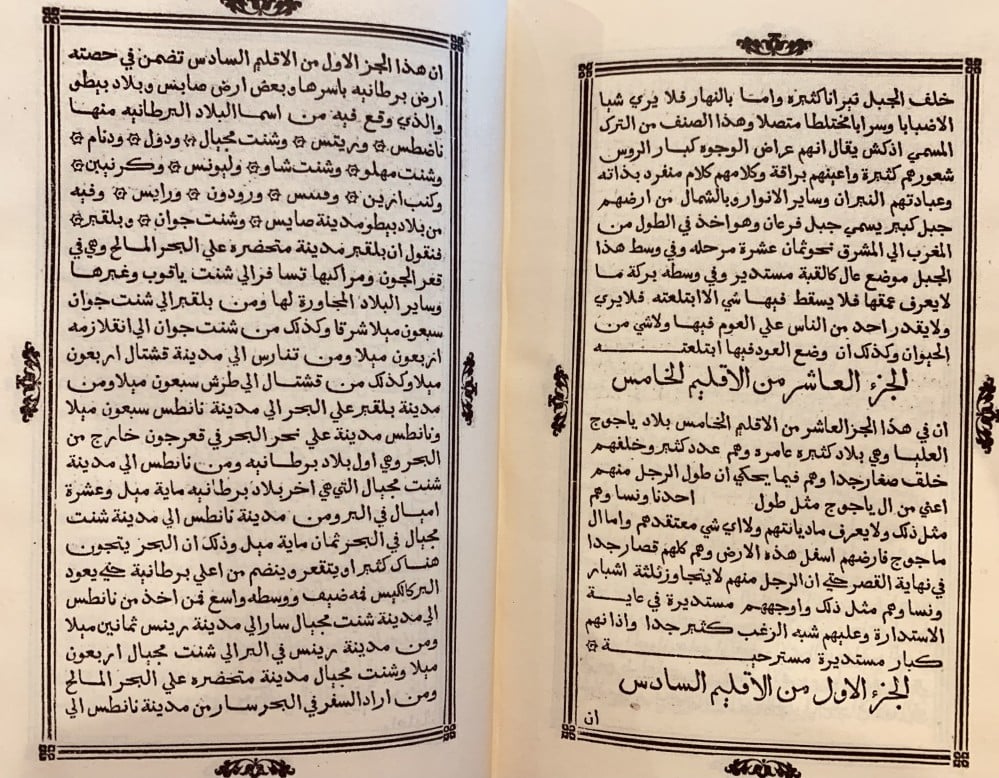 خلف الجبل نيرانا كثيرة واما بالنهار فلا يري شيا
الا ضبابا وسرابا مختلطا متصلا وهذا الصنف من الترك
المسمي اذكش يقال انهم عراض الوجوه كبار الروس
شعورهم كثيرة واعينهم براقة وكلامهم كلام منفرد بذاته
وعبادتهم النيران وساير الانوار وبالشمال من ارضهم
جبل كبير يسمي جبل فرعان وهو اخذ في الطول من
المغرب الي المشرق نحو ثمان عشرة مرحله وفي وسط هذا
الجبل موضع عال كالقبة مستدير وفي وسطه بركة ما
لا يعرف عمقها فلا يسقط فيها شي الا ابتلعته فلا يري
ولا يقدر احد من الناس علي العوم فيها ولا شي من
الحيوان وكذلك ان وضع العود فيها ابتلعته
الجزء العاشر من الاقليم الخامس
ان في هذا الجز العاشر من الاقليم الخامس بلاد ياجوج
العليا وهي بلاد كثيره عامره وهم عدد كثير وخلفهم
خلف صغار جدا وهم فيما يحكي ان طول الرجل منهم
اعني من ال ياجوج مثل طول احدنا ونسا وهم
مثل ذلك ولا يعرف ما ديانتهم ولا اي شي معتقدهم واما ال
ماجوج فارضهم اسفل هذه الارض وهم كلهم قصار جدا
في نهاية القصر حتي ان الرجل منهم لا يتجاوز ثلثة اشبار
ونسا وهم مثل ذلك واوجههم مستديرة في غاية
الاستدارة وعليهم شبه الزغب كثير جدا واذانهم
كبار مستديرة مسترخية
الجزء الاول من الاقليم السادس
ان
ان هذا الجز الاول من الاقليم السادس تضمن في حصته
ارض برطانيه باسرها وبعض ارض صايس وبلاد بيطو
والذي وقع فيه من اسما البلاد البرطانيه منها
ناضطس وريتس وشنت مجيال ودول ودنام
وشنت مهلو وشنت شاو وليونس وكرنبين
وكنب ازين ورودون ورايس وفيه
من بلاد بيطو مدينة صايس وشنت جوان وبلقير
فنقول ان بلقير مدينة متحضره علي البحر المالح وهي في
قعر الجون ومراكبها تسافر الي شنت ياقوب وغيرها
وساير البلاد المجاورة لها ومن بلقير الي شنت جوان
سبعون ميلا شرقا وكذلك من شنت جوان الي انقلازمه
اربعون ميلا ومن تنارس الي مدينة قشتال اربعون
ميلا وكذلك من قشتال الي طرش سبعون ميلا ومن
مدينة بلقير علي البحر الي مدينة نانطس سبعون ميلا
ونانطس مدينة علي نحر البحر في قعر جون خارج من
البحر وهي اول بلاد برطانيه ومن نانطس الي مدينة
شنت مجيال التي هي اخر بلاد برطانيه ماية ميل وعشرة
اميال في البر ومن مدينة نانطس الي مدينة شنت
مجيال في البحر ثمان ماية ميل وذلك ان البحر يتجون
هناك كثيرا ويتقعر وينضم من اعلي برطانية حتي يعود
البر كالكيس فمه ضيف ووسطه واسع فمن اخذ من نانطس
الي مدينة شنت مجيال سار الي مدينة رينس ثمانين ميلا
ومن مدينة رينس في البر الي شنت مجيال اربعون
ميلا وشنت مجيال مدينة متحضره علي البحر المالح
ومن اراد السفر في البحر سار من مدينة نانطس الي